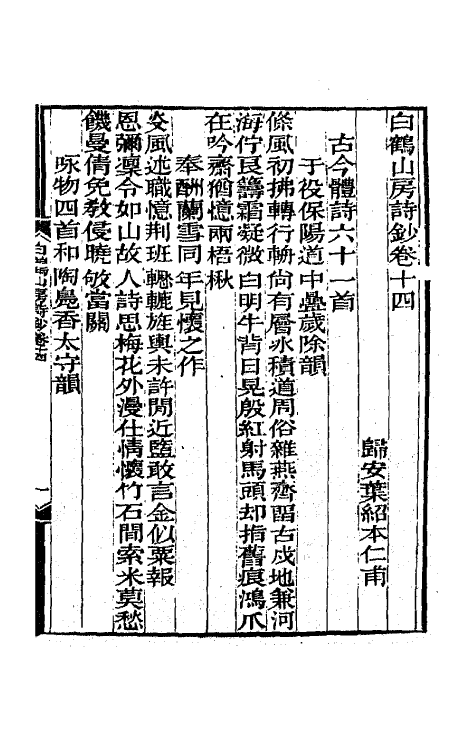 白鶴山房詩鈔卷十四
歸安葉紹本仁甫
古今體詩六十一首
于役保陽道中疊歲除韻
條風初拂轉行輈尚有層冰積道周俗雜燕齊留古戍地兼河
海佇良籌霜凝微白明牛背日晃殷紅射馬頭却指舊痕鴻爪
在吟齋猶憶兩梧楸
奉酬蘭雪同年見懷之作
父風述職憶荆班轣轆旌輿未許閒近鹽敢言金似粟報
恩彌凜令如山故人詩思梅花外漫仕情懷竹石間索米莫愁
饑曼倩免教侵曉敂當關
咏物四首和陶鳧香太守韻
白鶴山房詩鈔卷十四
一